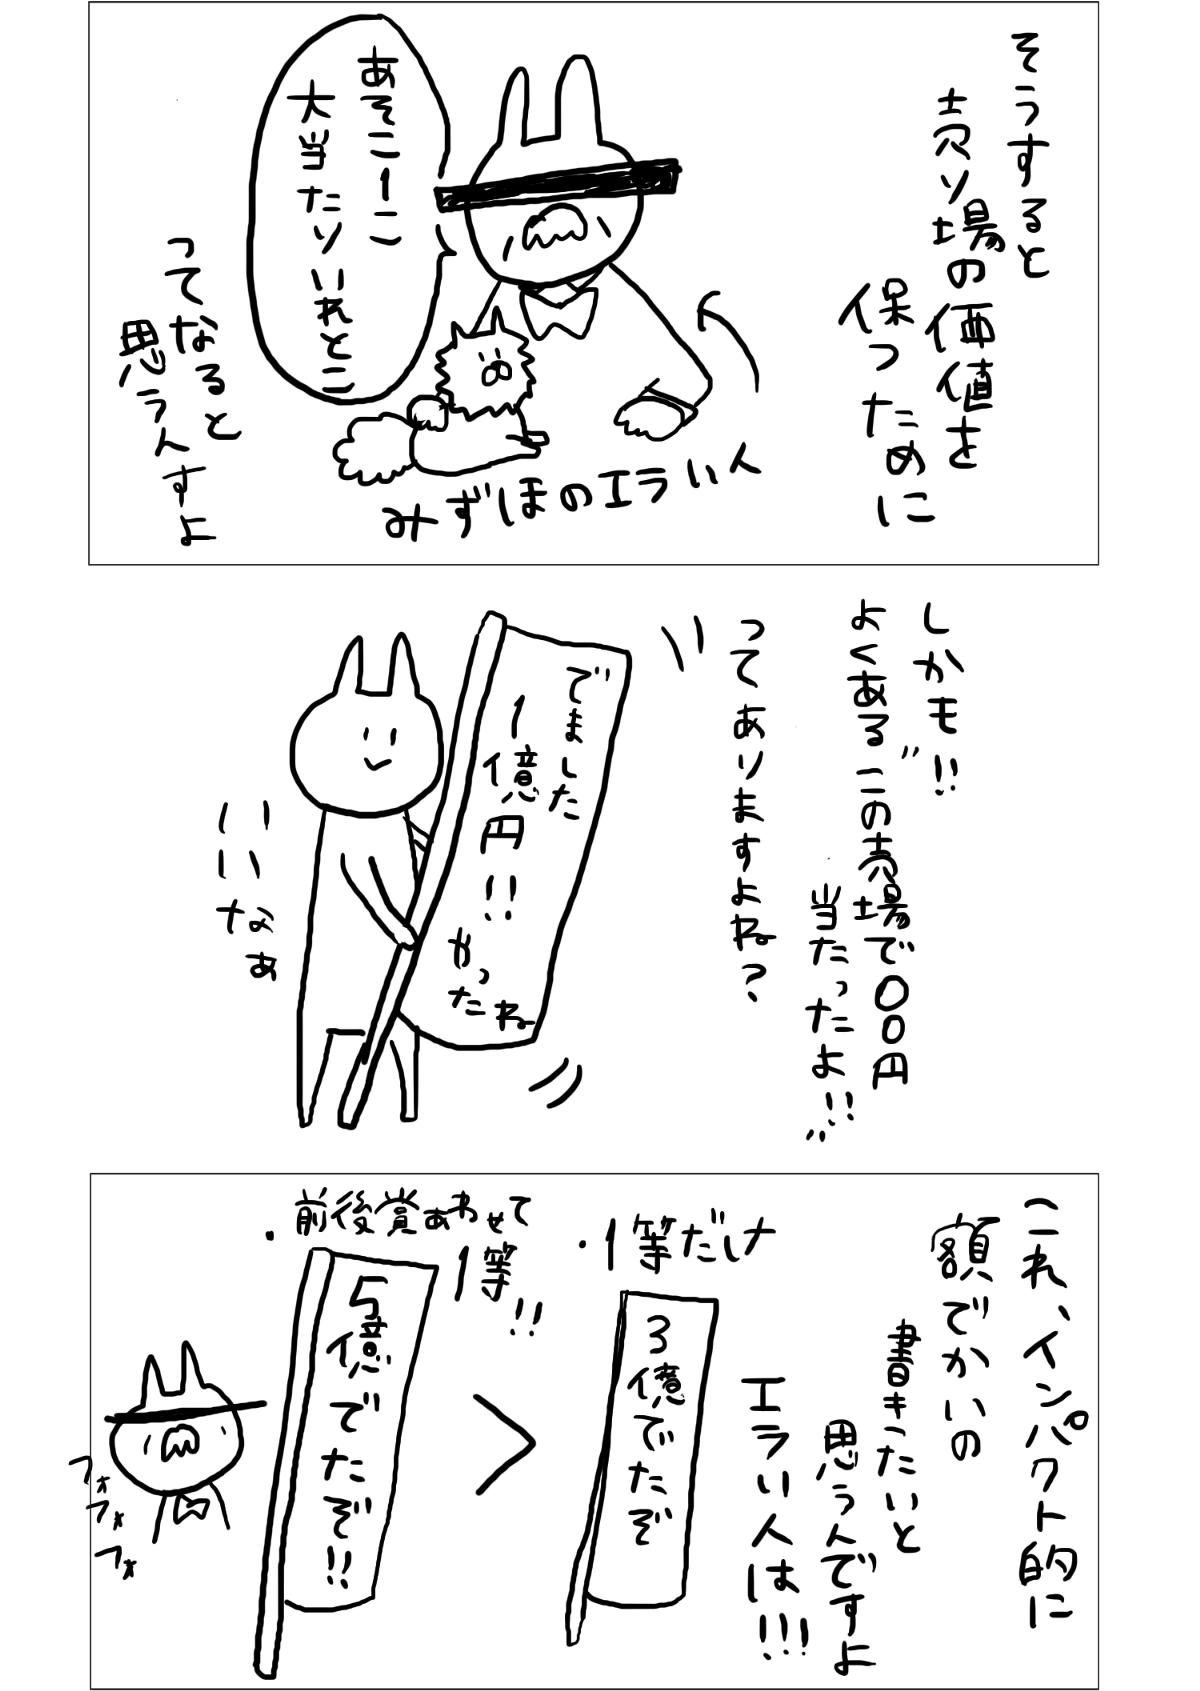 そうすると
売り場の価値を
保つために
あそこーこ
大当たりいれとこ
みずほのエラい人
ってなると
思うんすよ
しかも!!
よくある"この売場で〇〇円
当たったよ!!"
ってありますよね?
でました
1億円!!
かったね
いいなぁ
これ、インパクト的に
額でかいの
書きたいと
思うんですよ
エラい人は!!!
・1等だけ
3億でたぞ
>
・前後賞あわせて
1等!!
5億でたぞ!!
フォ
フォ
フォ